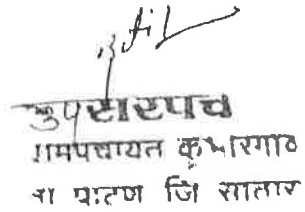 उपसरपंच
ग्रामपंचायत कुंभारगाव
ता पाटण जि सातार